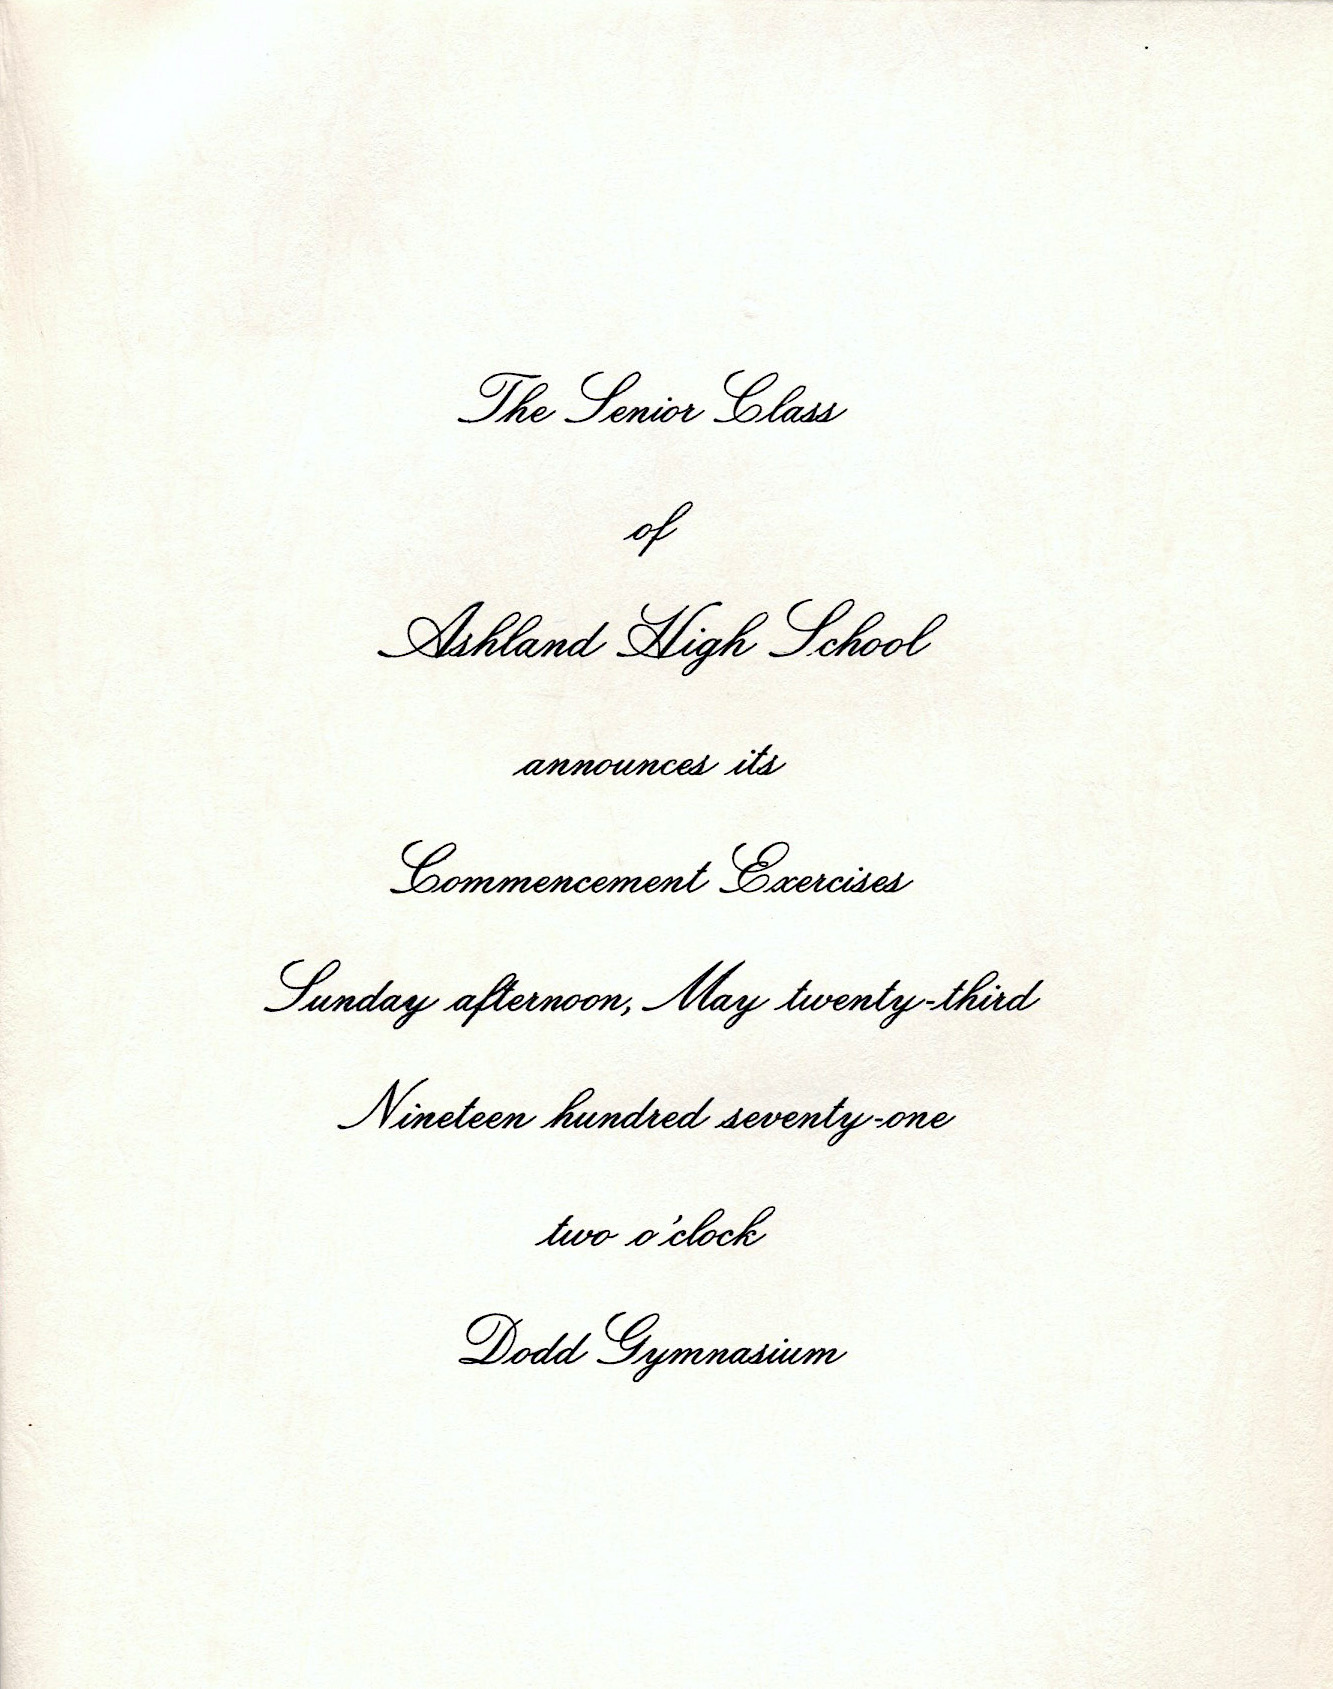 The Senior Class
of
Ashland High School
announces its
Commencement Exercises
Sunday afternoon, May twenty-third
Nineteen hundred seventy-one
two o'clock
Dodd Gymnasium